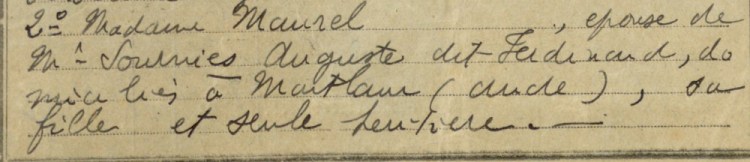 2º Madame Maurel ..., epouse de
Mr Sournies Auguste dit Ferdinand, do
miciliés à Montlaur (Aude), sa
fille et seule heritiere. —